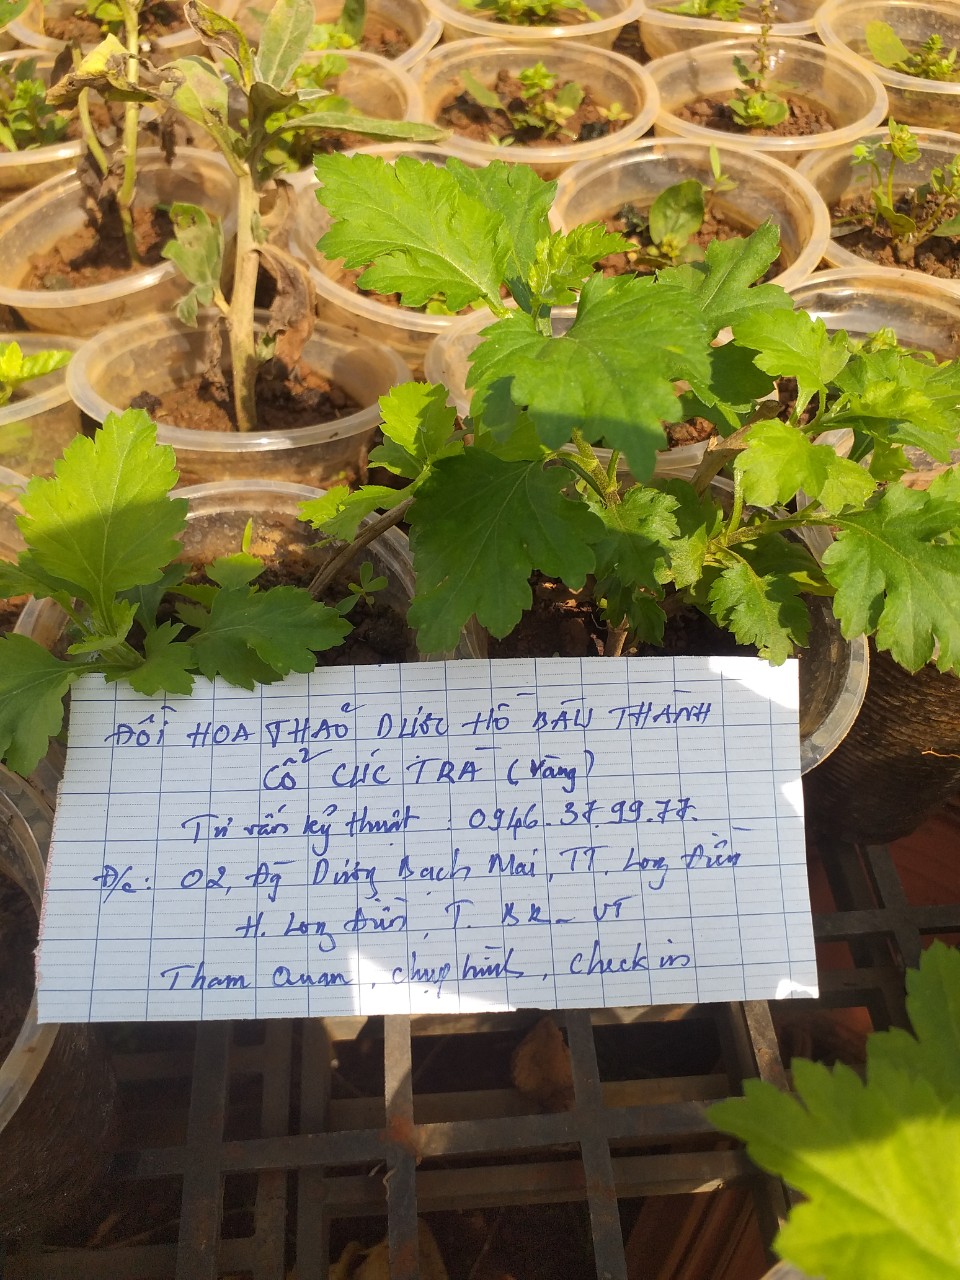 ĐỒI HOA THẢO DƯỢC HỒ BẦU THÀNH
CỔ CÚC TRÀ (vàng)
Tư vấn kỹ thuật : 0946.37.99.77.
Đ/c: 02, Đg Dương Bạch Mai, TT. Long Điền
H. Long Điền, T. BR_VT
Tham Quan, chụp hình, check in